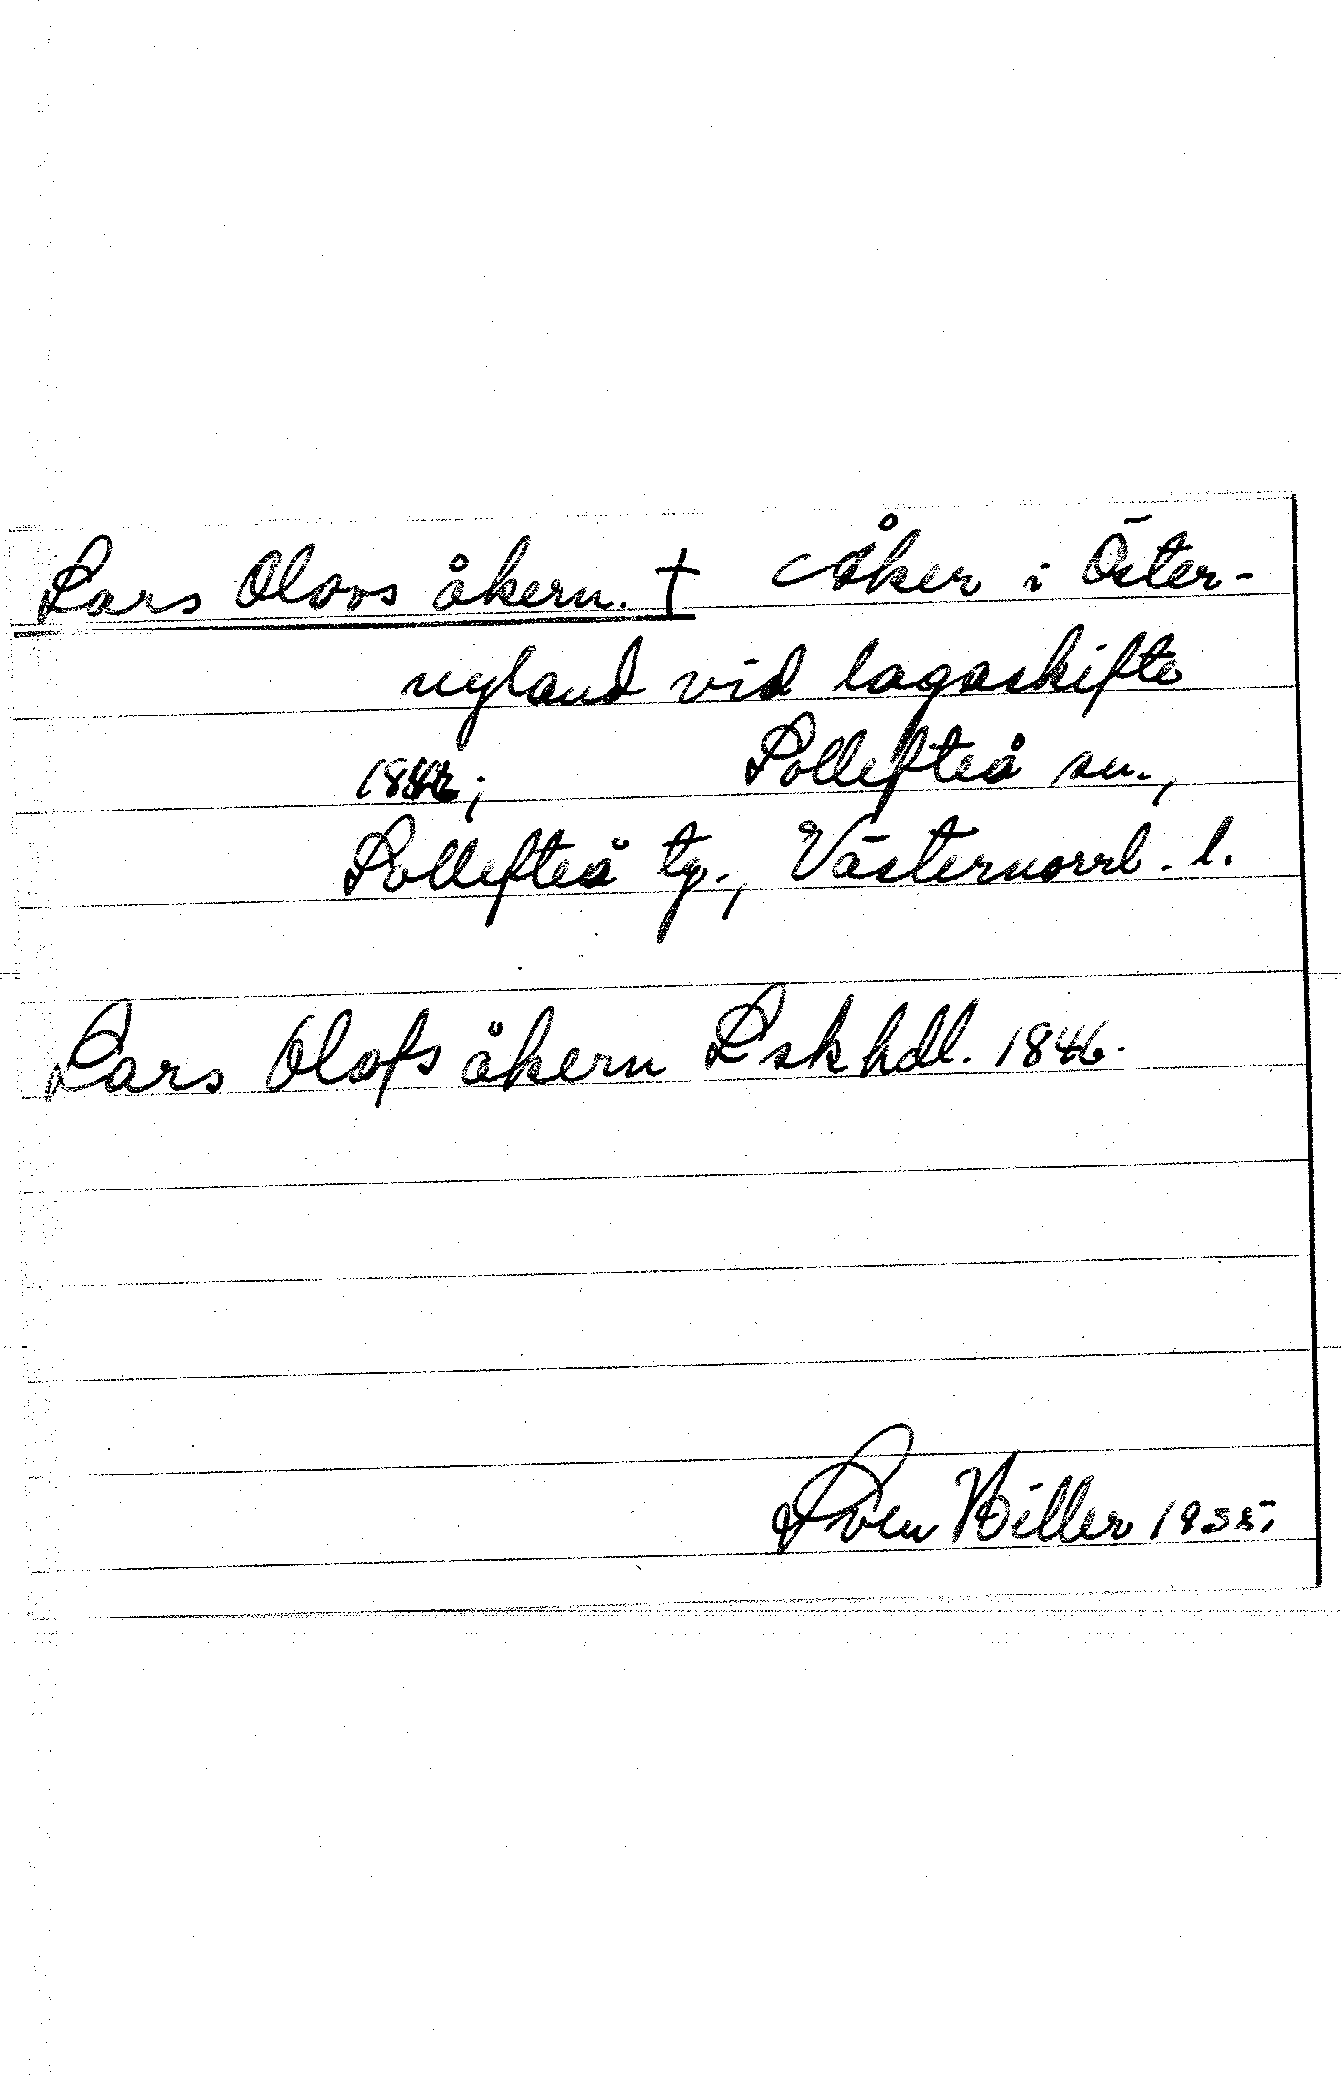 Lars Olovs åkern. † Åker i Öster-
nyland vid lagaskifte
1846; Sollefteå sn.,
Sollefteå tg., Västernorrl. l.
Lars Olofs åkern Lskhdl. 1846.
Sven Hiller 1935.